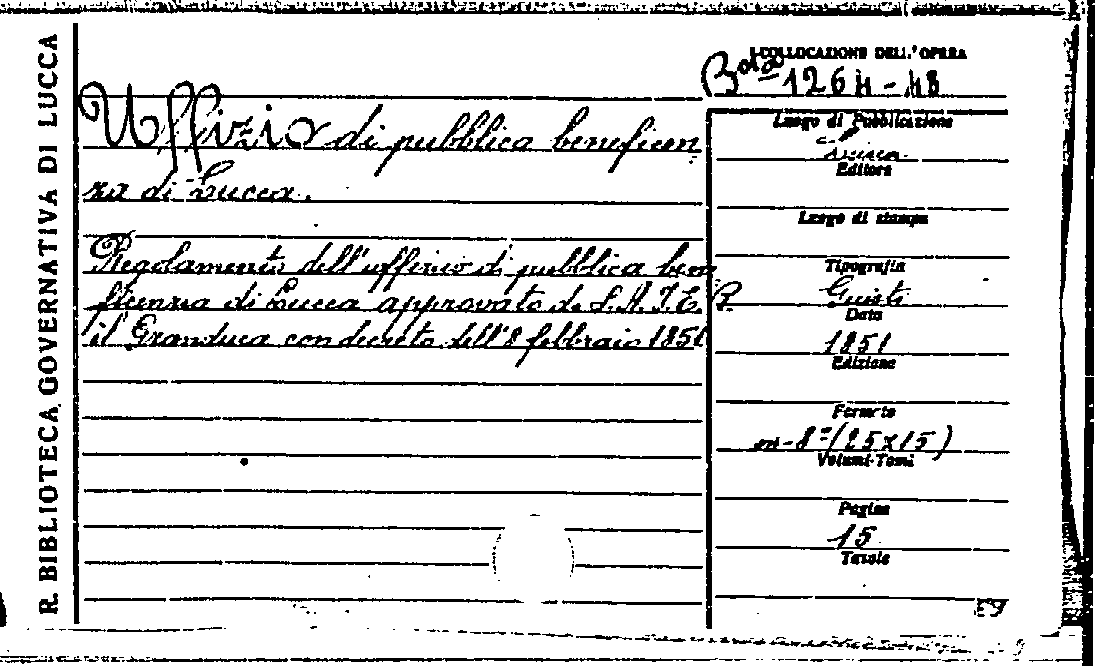 R. BIBLIOTECA GOVERNATIVA DI LUCCA
COLLOCAZIONE DELL'OPERA
Bta 1264-48
Uffizio di pubblica beneficen
za di Lucca.
Regolamento dell'uffizio di pubblica bene
ficenza di Lucca approvato da S.A.I.E.R.
il Granduca con decreto dell'8 febbraio 1851
Luogo di Pubblicazione
Lucca
Editore
Luogo di stampa
Tipografia
Giusti
Data
1851
Edizione
Formato
in-8° (25x15)
Volumi-Tomi
Pagine
15
Tavole